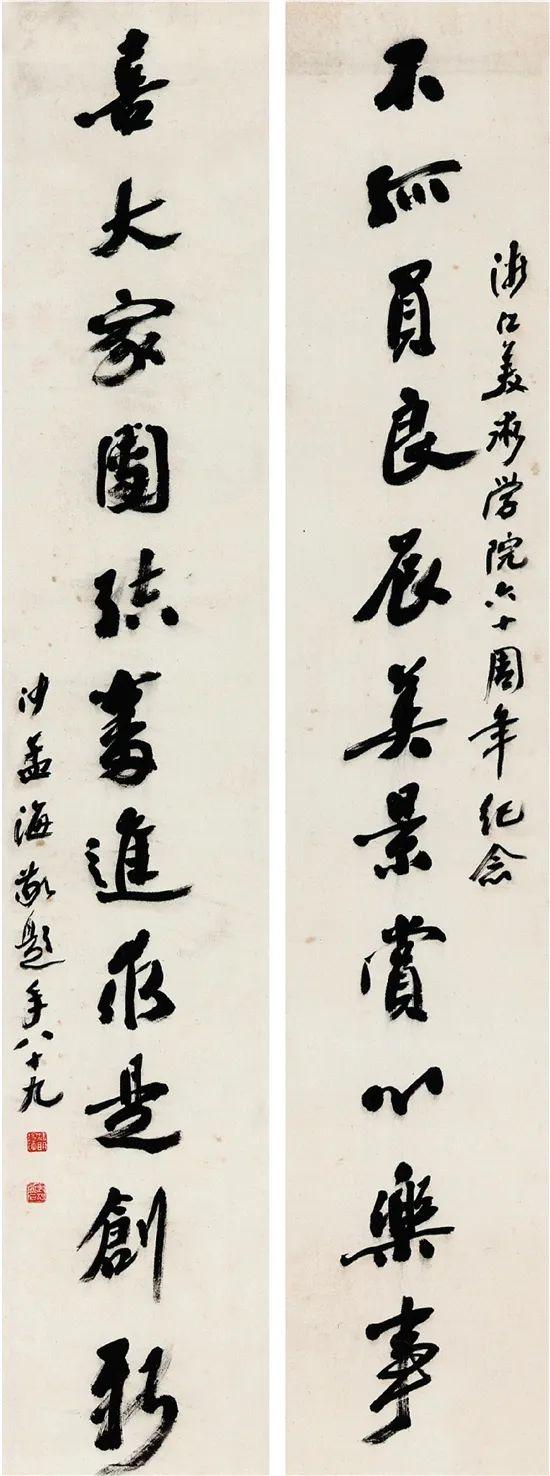 浙江美術学院六十周年紀念
不孤負良辰美景賞心樂事
喜大家團結奮進求是創新
沙孟海敬題年八十九